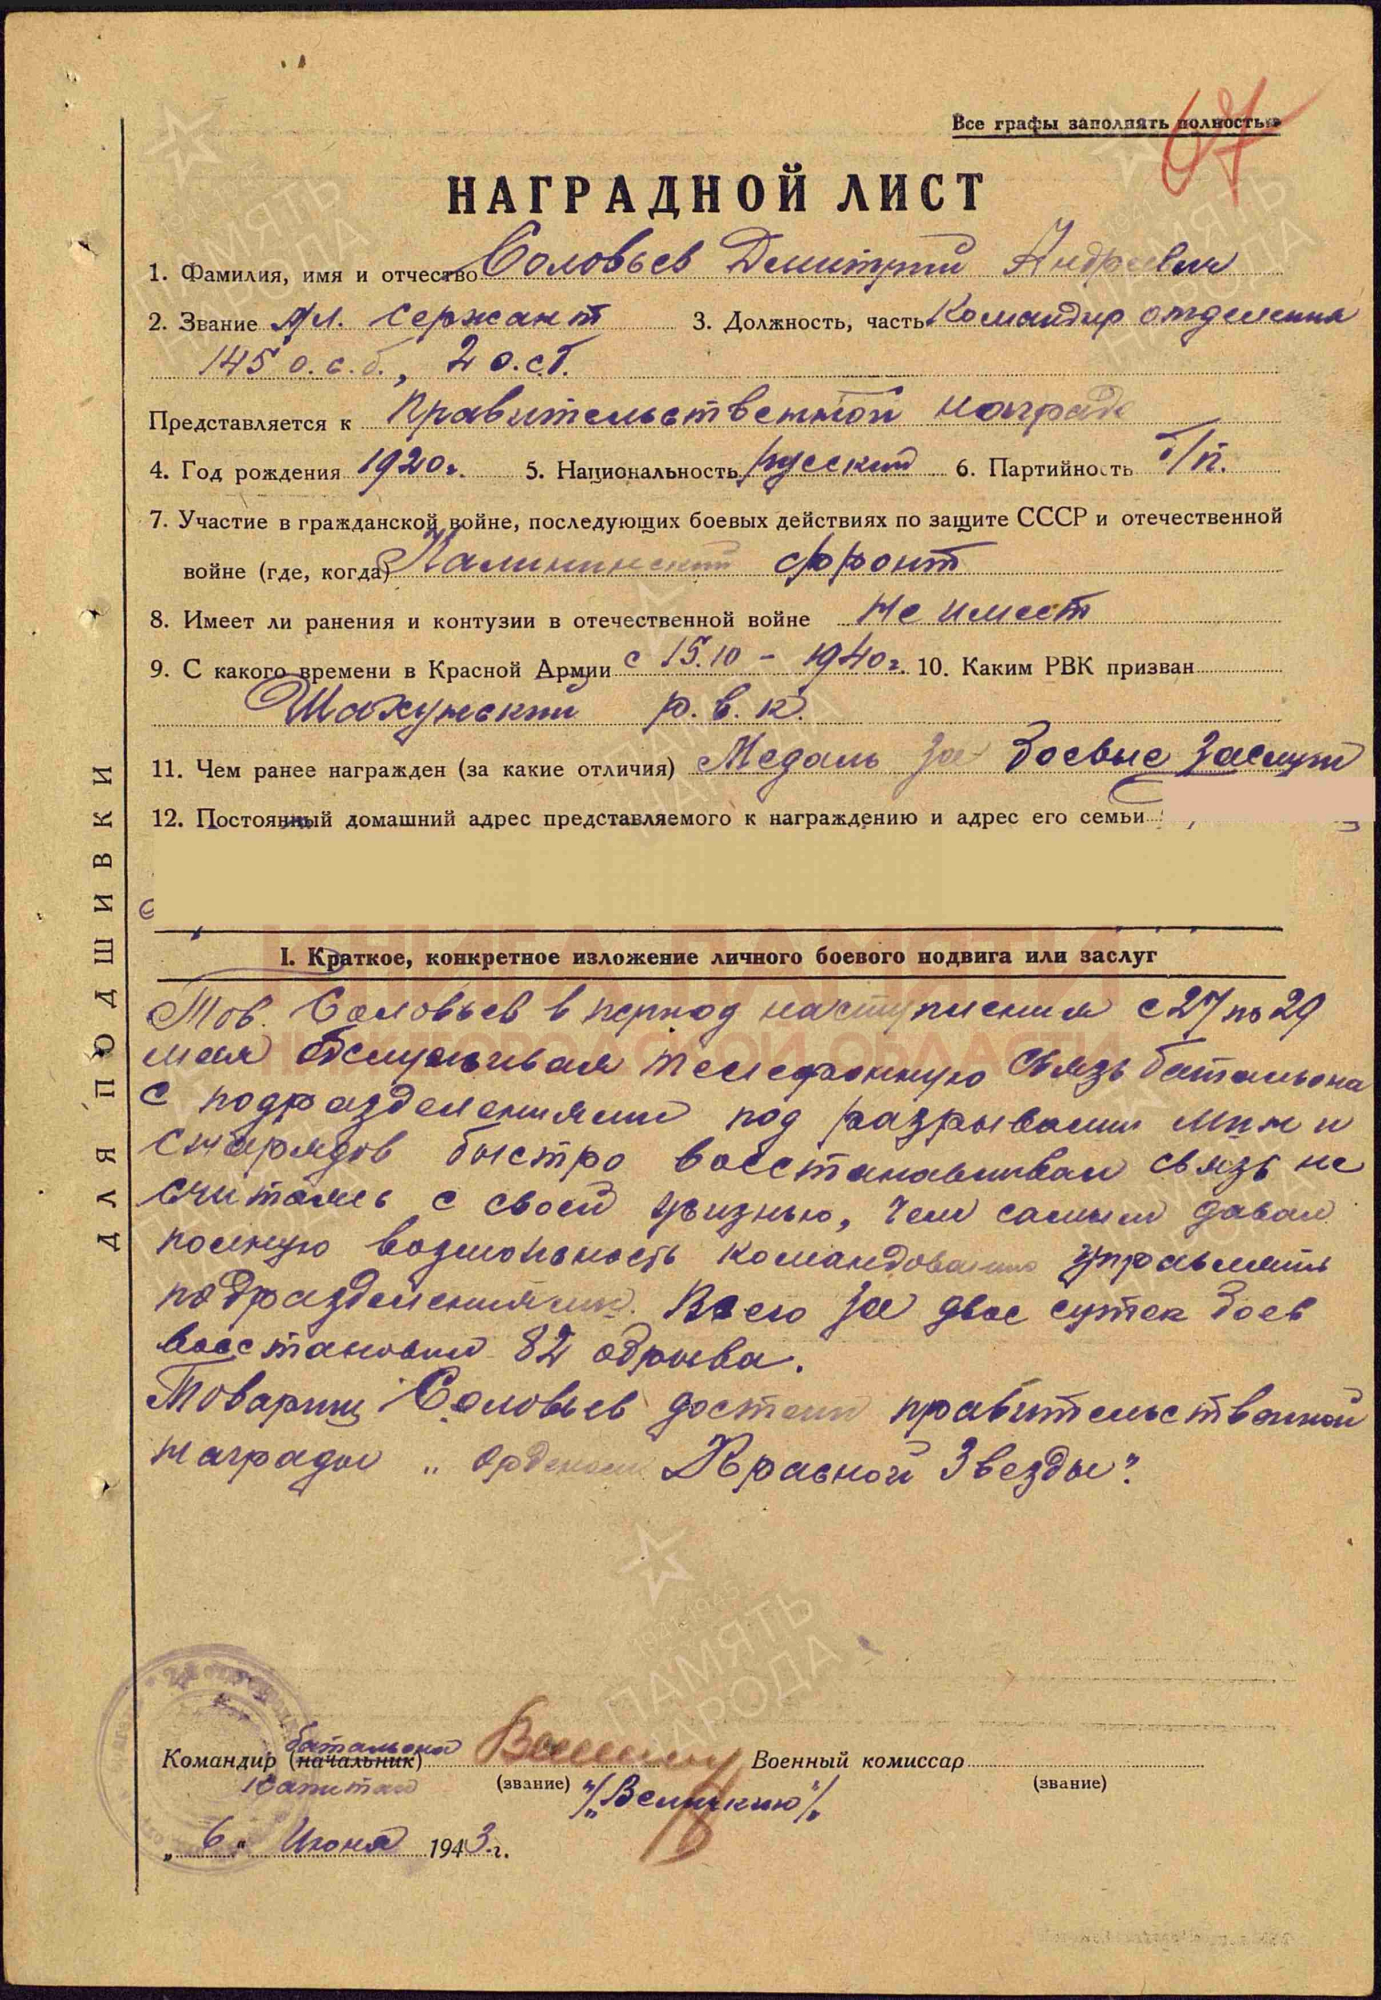 67
Все графы заполнять полностью
НАГРАДНОЙ ЛИСТ
1. Фамилия, имя и отчество Соловьев Дмитрий Андреевич
2. Звание Мл. сержант 3. Должность, часть Командир отделения
145 о.с.б., 2 о.с.б.
Представляется к правительственной награде
4. Год рождения 1920г. 5. Национальность русский 6. Партийность б/п.
7. Участие в гражданской войне, последующих боевых действиях по защите СССР и отечественной
войне (где, когда) Калининский фронт
8. Имеет ли ранения и контузии в отечественной войне не имеет
9. С какого времени в Красной Армии с 15.10 - 1940г. 10. Каким РВК призван
Шахунский р.в.к.
11. Чем ранее награжден (за какие отличия) Медаль за боевые заслуги
12. Постоянный домашний адрес представляемого к награждению и адрес его семьи
I. Краткое, конкретное изложение личного боевого подвига или заслуг
Тов. Соловьев в период наступления с 27 по 29
мая обслуживая телефонную связь батальона
с подразделениями под разрывами мин и
снарядов быстро восстанавливал связь не
считаясь с своей жизнью, чем самым давал
полную возможность командованию управлять
подразделениями. Всего за двое суток боев
восстановил 82 обрыва.
Товарищ Соловьев достоин правительственной
награды „Орденом Красной Звезды".
батальона
Командир (начальник) Военный комиссар
Капитан (звание) /„Величкин"/ (звание)
„6" Июня 1943 г.
ДЛЯ ПОДШИВКИ
КНИГА ПАМЯТИ
НИЖЕГОРОДСКОЙ ОБЛАСТИ
ПАМЯТЬ НАРОДА
1941-1945